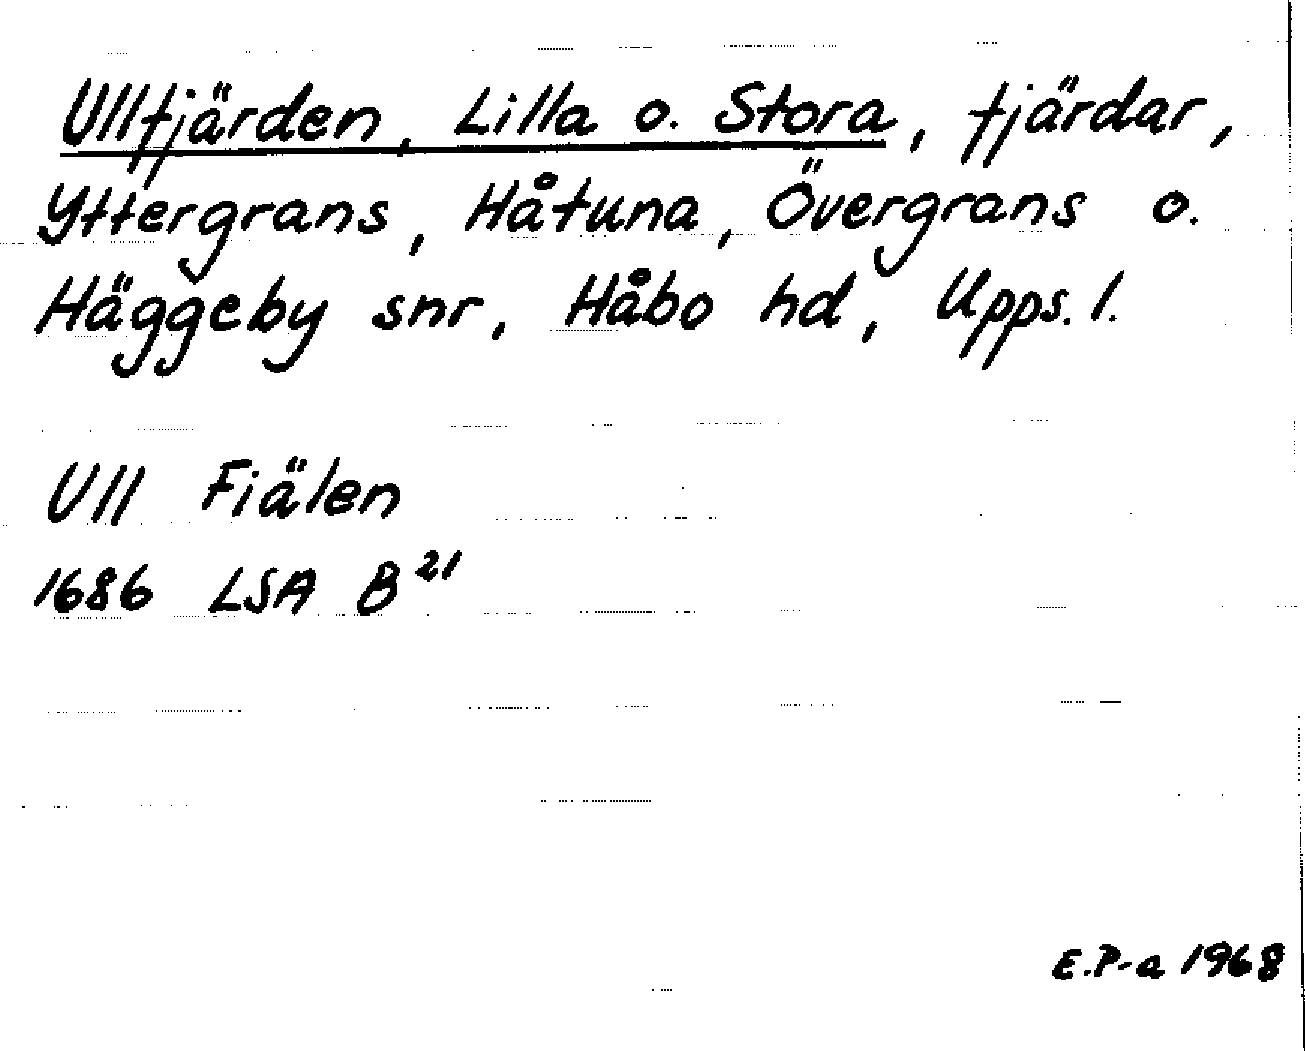 Ullfjärden, Lilla o. Stora, fjärdar,
Yttergrans, Håtuna, Övergrans o.
Häggeby snr, Håbo hd, Upps. l.
Ull Fiälen
1686 LSA B²¹
E.P-a 1968